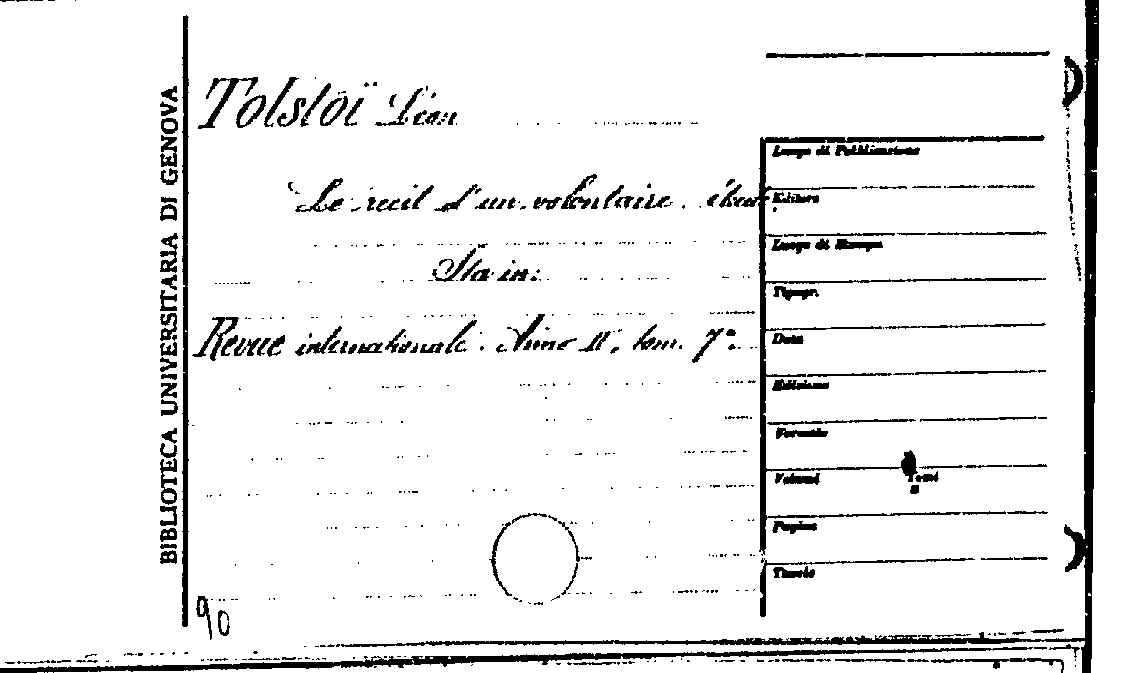 BIBLIOTECA UNIVERSITARIA DI GENOVA
Tolstoï Léon
Le recit d'un volontaire.
Sta in:
Revue internationale. Anno II, tom. 7°.
90
Luogo di Pubblicazione
Editore
Luogo di Stampa
Tipogr.
Data
Edizione
Formato
Volumi Tomi
Pagine
Tavole